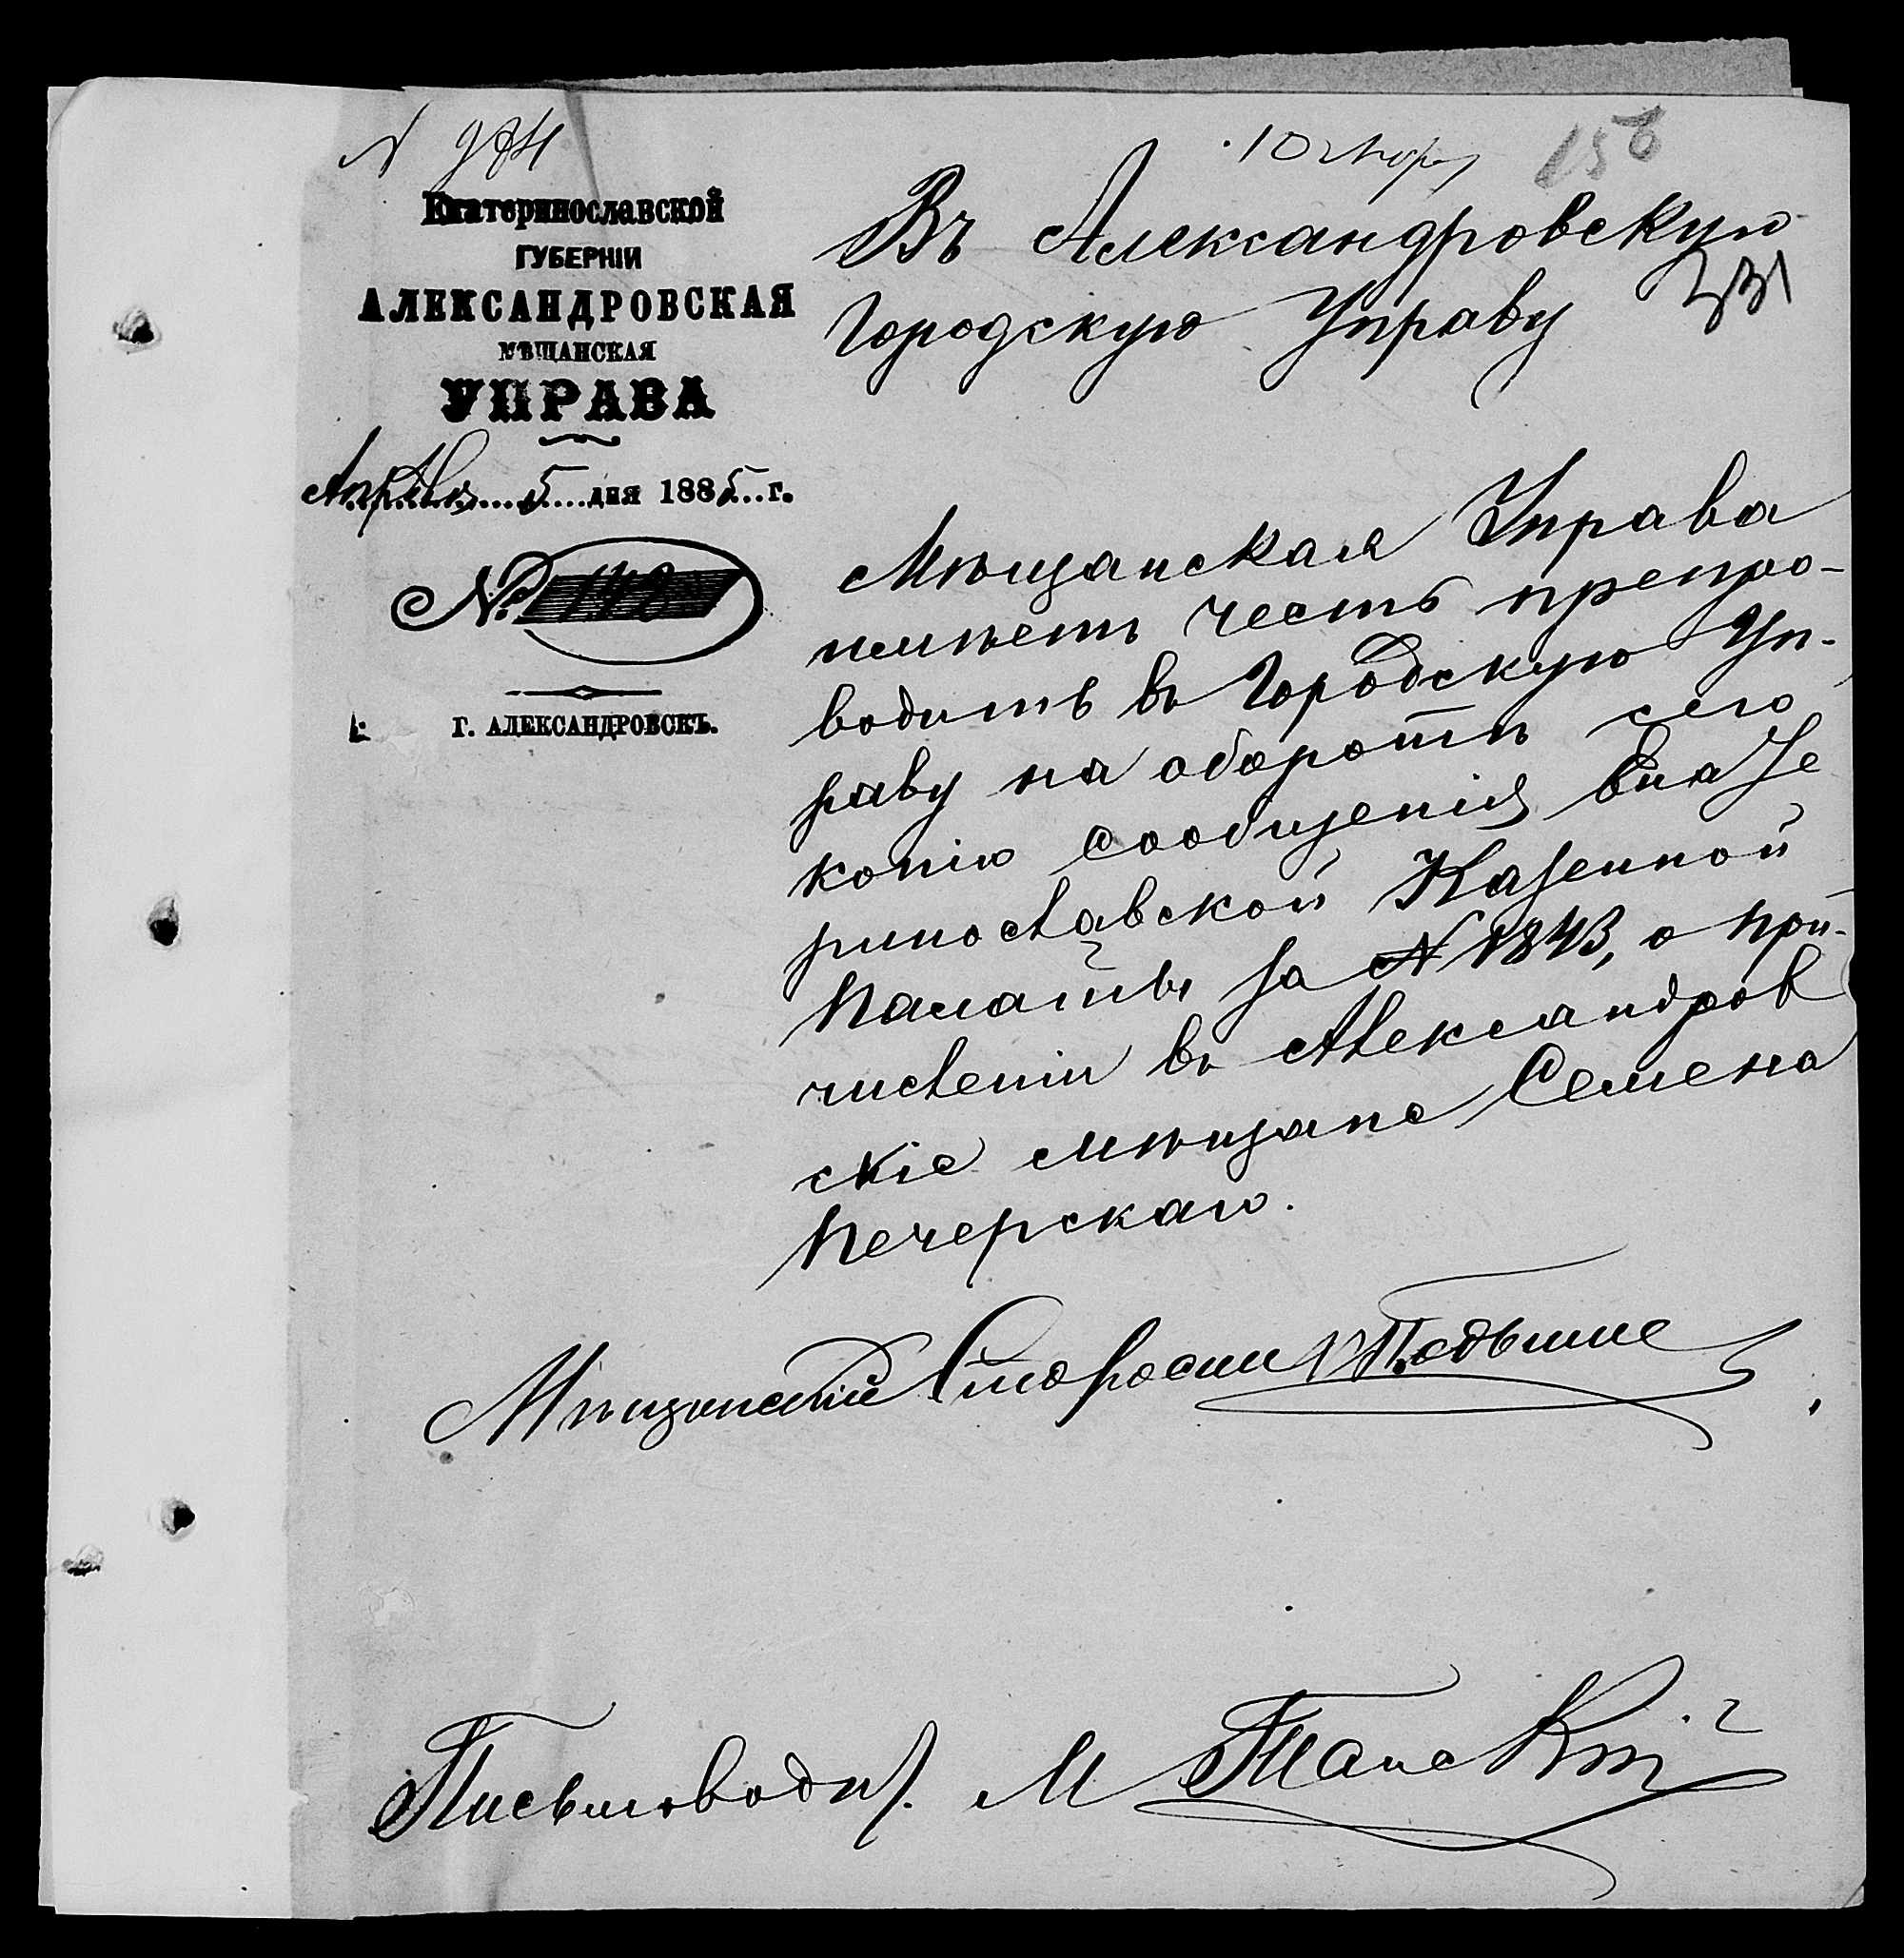 N 974
156
Екатеринославской
ГУБЕРНІИ
АЛЕКСАНДРОВСКАЯ
МѢЩАНСКАЯ
УПРАВА
Апрѣля 5 дня 1885 г.
№ 148
Г. АЛЕКСАНДРОВСКЪ.
Въ Александровскую
Городскую Управу
331
Мѣщанская Управа
имѣетъ честь препро-
водить въ Городскую Уп-
раву на оборотѣ сего
копію сообщенія Екате
ринославской Казенной
Палаты за N 1843, о при-
численіи въ Александров
скіе мѣщане Семена
Печерскаго.
Мѣщанскій Староста
Письмовод. М